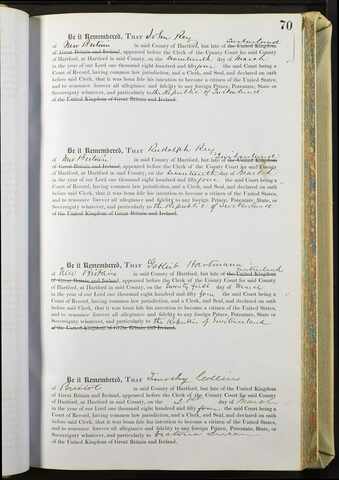 70
Be it Remembered, THAT John Rey
Switzerland
of New Britain in said County of Hartford, but late of the United Kingdom
of Great Britain and Ireland, appeared before the Clerk of the County Court for said County
of Hartford, at Hartford in said County, on the nineteenth day of March
in the year of our Lord one thousand eight hundred and fifty four the said Court being a
Court of Record, having common law jurisdiction, and a Clerk, and Seal, and declared on oath
before said Clerk, that it was bona fide his intention to become a citizen of the United States,
and to renounce forever all allegiance and fidelity to any foreign Prince, Potentate, State, or
Sovereignty whatever, and particularly to the Republic of Switzerland
of the United Kingdom of Great Britain and Ireland.
Be it Remembered, THAT Rudolph Rey
Switzerland
of New Britain in said County of Hartford, but late of the United Kingdom
of Great Britain and Ireland, appeared before the Clerk of the County Court for said County
of Hartford, at Hartford in said County, on the nineteenth day of March
in the year of our Lord one thousand eight hundred and fifty four the said Court being a
Court of Record, having common law jurisdiction, and a Clerk, and Seal, and declared on oath
before said Clerk, that it was bona fide his intention to become a citizen of the United States,
and to renounce forever all allegiance and fidelity to any foreign Prince, Potentate, State, or
Sovereignty whatever, and particularly to the Republic of Switzerland
of the United Kingdom of Great Britain and Ireland.
Be it Remembered, THAT Hartmann
Switzerland
of New Britain in said County of Hartford, but late of the United Kingdom
of Great Britain and Ireland, appeared before the Clerk of the County Court for said County
of Hartford, at Hartford in said County, on the Twenty first day of March
in the year of our Lord one thousand eight hundred and fifty four the said Court being a
Court of Record, having common law jurisdiction, and a Clerk, and Seal, and declared on oath
before said Clerk, that it was bona fide his intention to become a citizen of the United States,
and to renounce forever all allegiance and fidelity to any foreign Prince, Potentate, State, or
Sovereignty whatever, and particularly to the Republic of Switzerland
of the United Kingdom of Great Britain and Ireland.
Be it Remembered, THAT Timothy Collins
of Bristol in said County of Hartford, but late of the United Kingdom
of Great Britain and Ireland, appeared before the Clerk of the County Court for said County
of Hartford, at Hartford in said County, on the day of March
in the year of our Lord one thousand eight hundred and fifty four the said Court being a
Court of Record, having common law jurisdiction, and a Clerk, and Seal, and declared on oath
before said Clerk, that it was bona fide his intention to become a citizen of the United States,
and to renounce forever all allegiance and fidelity to any foreign Prince, Potentate, State, or
Sovereignty whatever, and particularly to Victoria Queen
of the United Kingdom of Great Britain and Ireland.